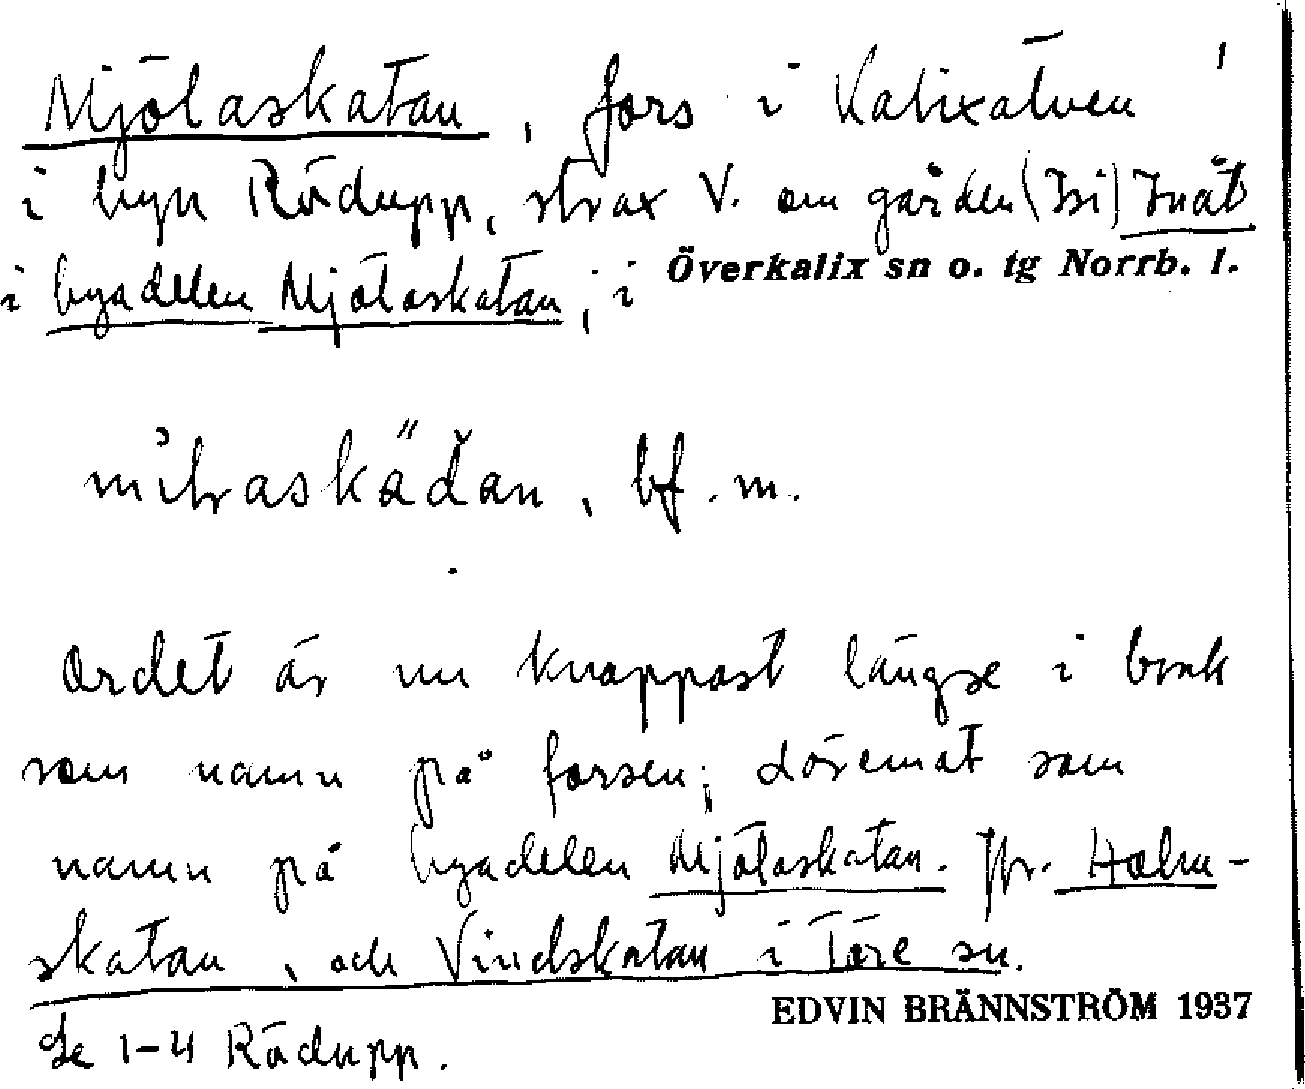 Mjölaskatan, fors i Kalixälven
i byn Rödupp, strax V. om gården (Isi) Inät
i byadelen Mjölaskatan, i Överkalix sn o. tg Norrb. l.
bf. m.
Ordet är nu knappast längre i bruk
som namn på forsen; däremot som
namn på byadelen Mjölaskatan. Jfr. Holm-
skatan, och Vindskatan i Töre sn.
EDVIN BRÄNNSTRÖM 1937
Se 1-4 Rödupp.